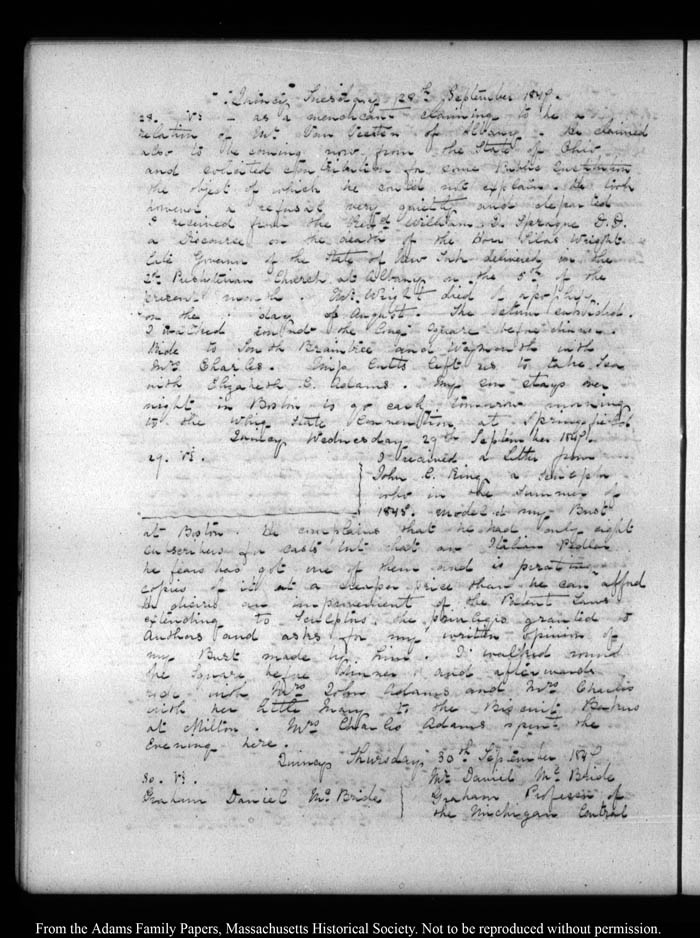 Quincy Tuesday 28th September 1847.
28. VI. — as a mendicant claiming to be a
relation of Mr Van Vechten of Albany. He claimed
also to be coming now from the State of Ohio
and solicited contribution for some Public Institution
the object of which he could not explain. He took
however a refusal very quietly and departed
I received from the Revd William B. Sprague D.D.
a Discourse on the death of the Hon Silas Wright
late Governor of the State of New York delivered in the
2d Presbyterian Church at Albany on the 5th of the
present month. Mr Wright died of apoplexy
on the day of August. The
I walked round the Square before dinner.
Ride to South Braintree and Weymouth with
Mrs Charles. Cutts left us to take Tea
with Elizabeth C. Adams. My son stays over
night in Boston to go each tomorrow morning
to the Whig State Convention at Springfield
Quincy Wednesday 29th September 1847.
29. VI. I received a letter from
John C. King a sculptor
who in the Summer of
1845. modeled my Bust
at Boston. He complains that he had only eight
subscribers for casts but that an Italian Pedlar
he fears has got one of them and is pirating
copies of it at a cheaper price than he can afford
He desires an improvement of the Patent Laws
extending to Sculptors the privileges granted to
Authors and asks for my written opinion of
my Bust made by him. I walked round
the Square before dinner and afterwards
ride with Mrs John Adams and Mrs Charles
with her little Mary to the Biscuit Bakers
at Milton. Mrs Charles Adams spent the
Evening here.
Quincy Thursday 30th September 1847
30. VI. Mr Daniel McBride
Graham Daniel McBride Graham Professor of
the Michigan Central
From the Adams Family Papers, Massachusetts Historical Society. Not to be reproduced without permission.